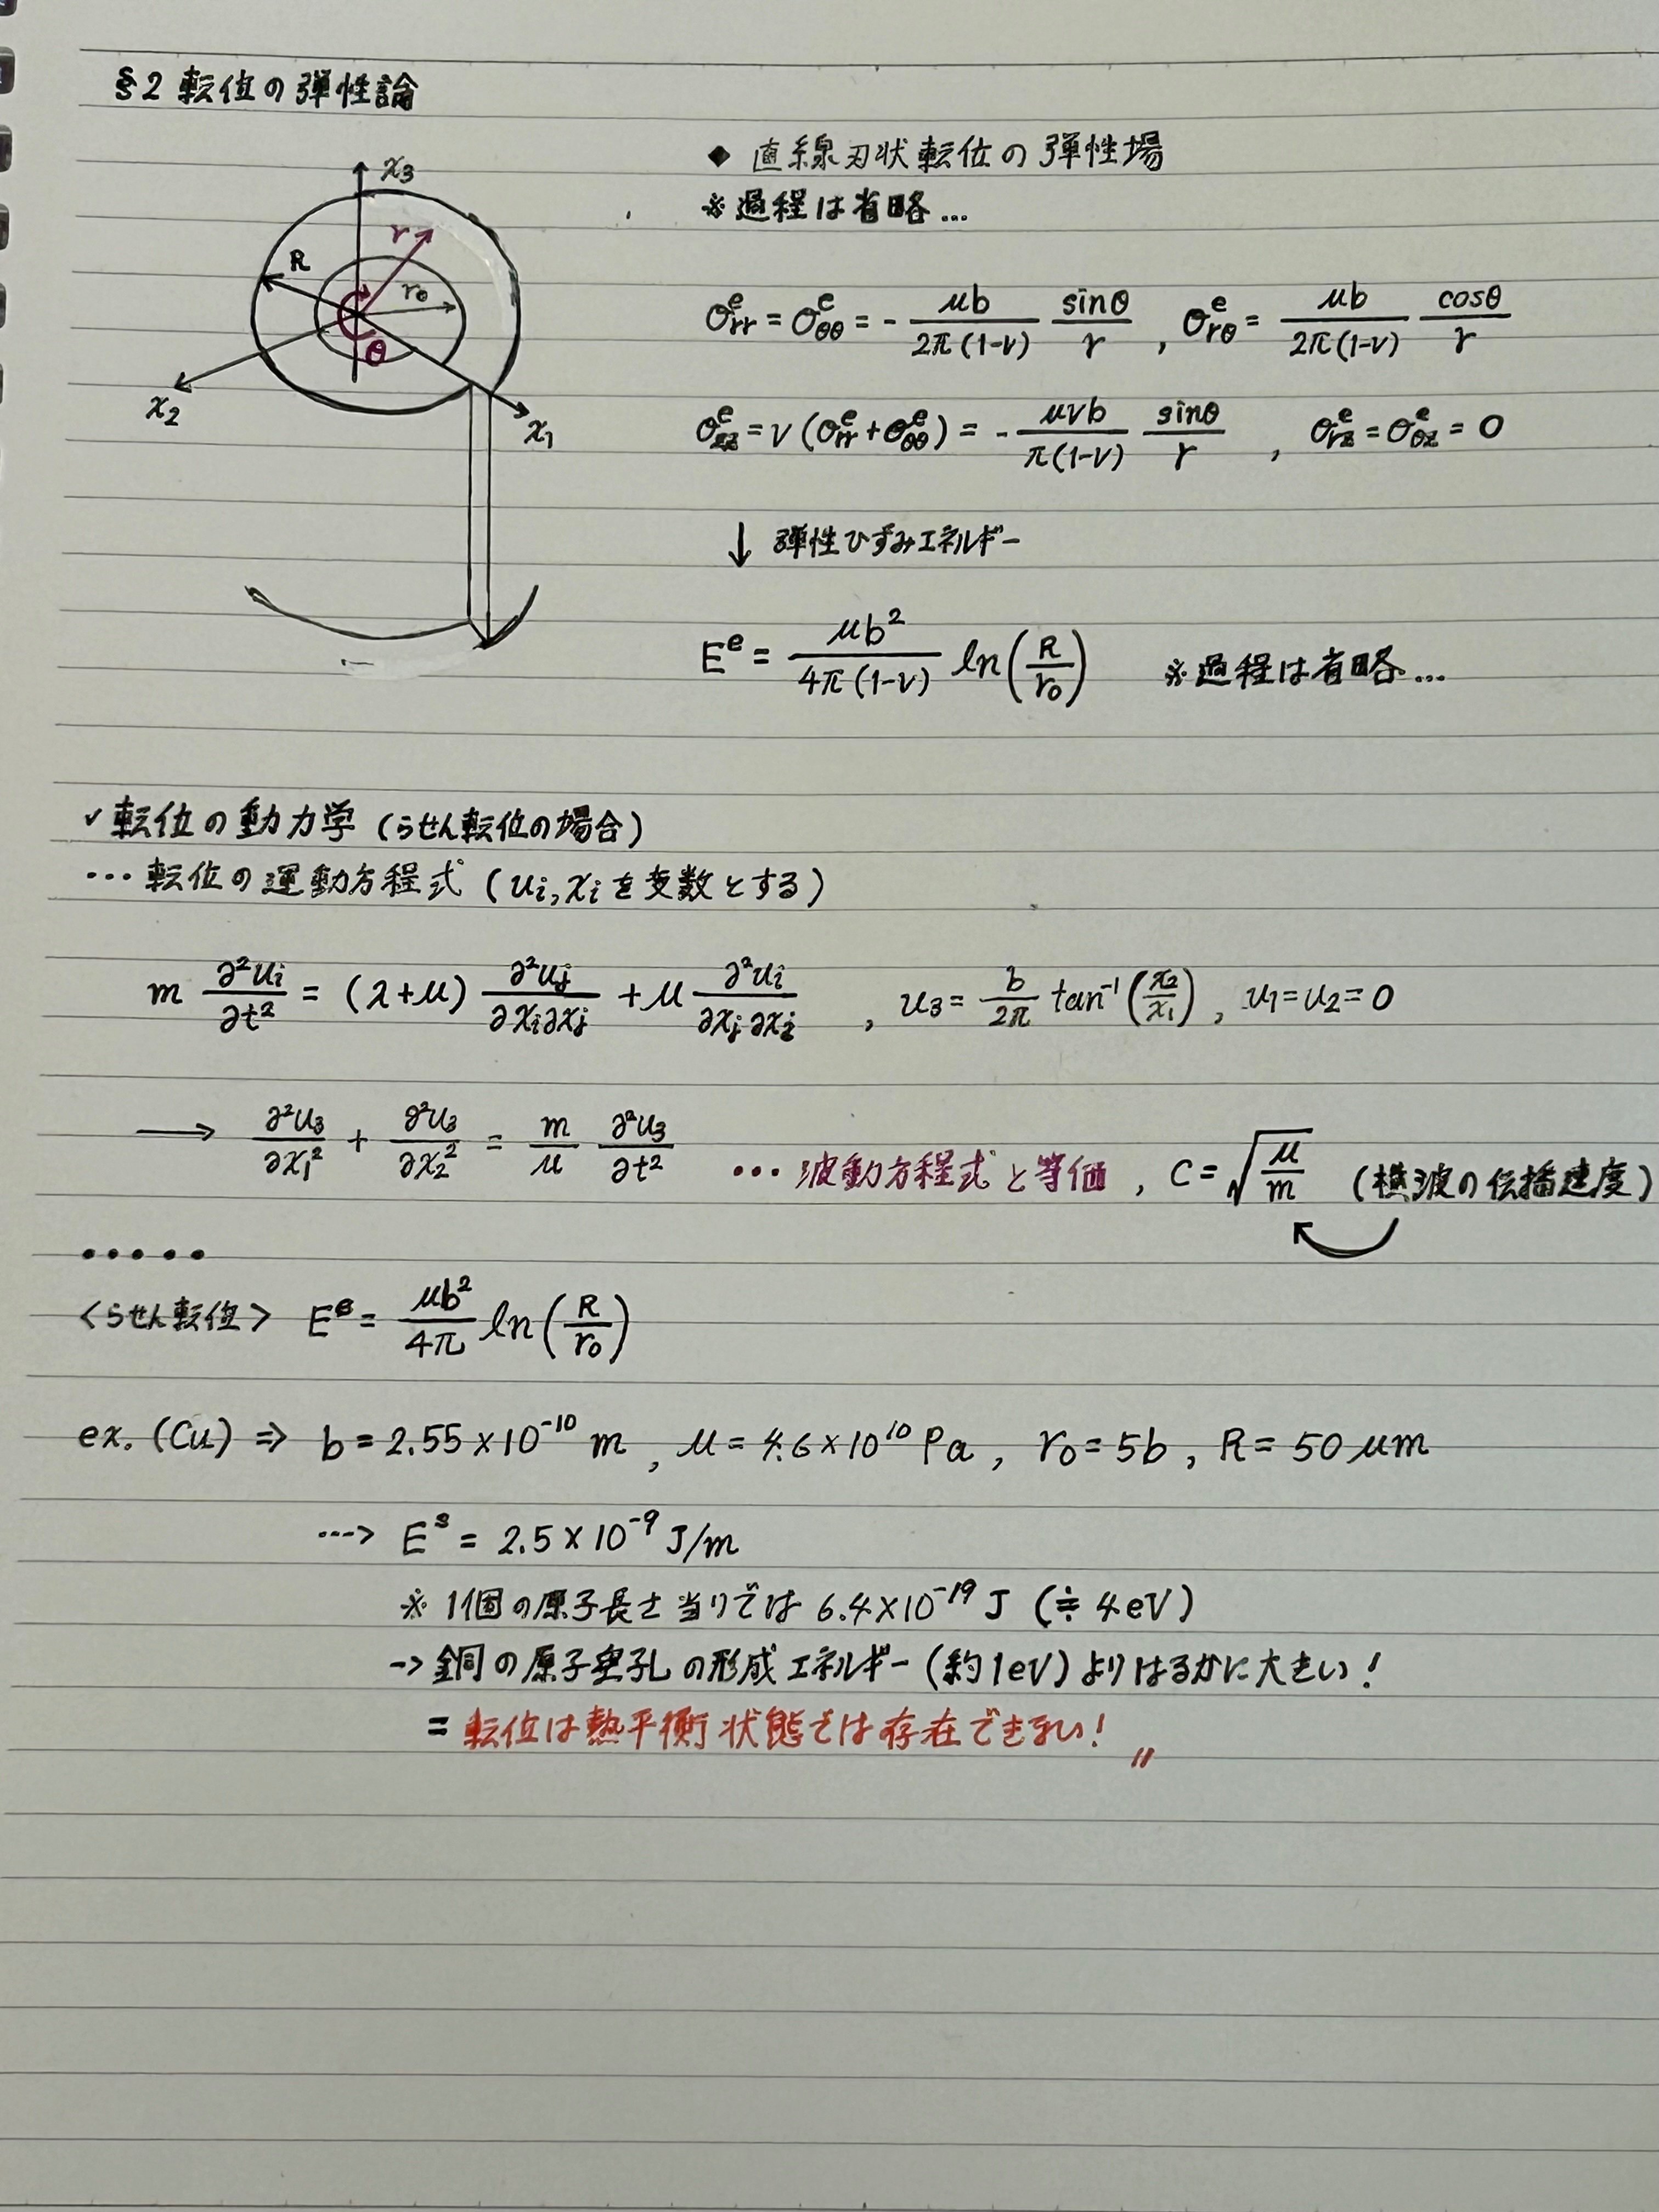 §2 転位の弾性論
x₃
r
R
r₀
θ
x₂
x₁
◆ 直線刃状転位の弾性場
※過程は省略…
σᵉrr = σᵉθθ = - μb/2π(1-ν) sinθ/r , σᵉrθ = μb/2π(1-ν) cosθ/r
σᵉzz = ν(σᵉrr + σᵉθθ) = - μνb/π(1-ν) sinθ/r , σᵉrz = σᵉθz = 0
↓ 弾性ひずみエネルギー
Eᵉ = μb²/4π(1-ν) ln(R/r₀) ※過程は省略…
✓転位の動力学 (らせん転位の場合)
…転位の運動方程式 (ui, xiを変数とする)
m ∂²ui/∂t² = (λ+μ) ∂²uj/∂xi∂xj + μ ∂²ui/∂xj∂xj , u₃ = b/2π tan⁻¹(x₂/x₁) , u₁=u₂=0
→ ∂²u₃/∂x₁² + ∂²u₃/∂x₂² = m/μ ∂²u₃/∂t² …波動方程式と等価 , C=√(μ/m) (横波の伝播速度)
•••••
<らせん転位> Eˢ = μb²/4π ln(R/r₀)
ex. (Cu) ⇒ b = 2.55×10⁻¹⁰ m , μ = 4.6×10¹⁰ Pa , r₀ = 5b , R = 50 μm
⇢ Eˢ = 2.5×10⁻⁹ J/m
※ 1個の原子長さ当りでは 6.4×10⁻¹⁹ J (≒ 4eV)
→ 銅の原子空孔の形成エネルギー (約1eV) よりはるかに大きい!
= 転位は熱平衡状態では存在できない! 〃